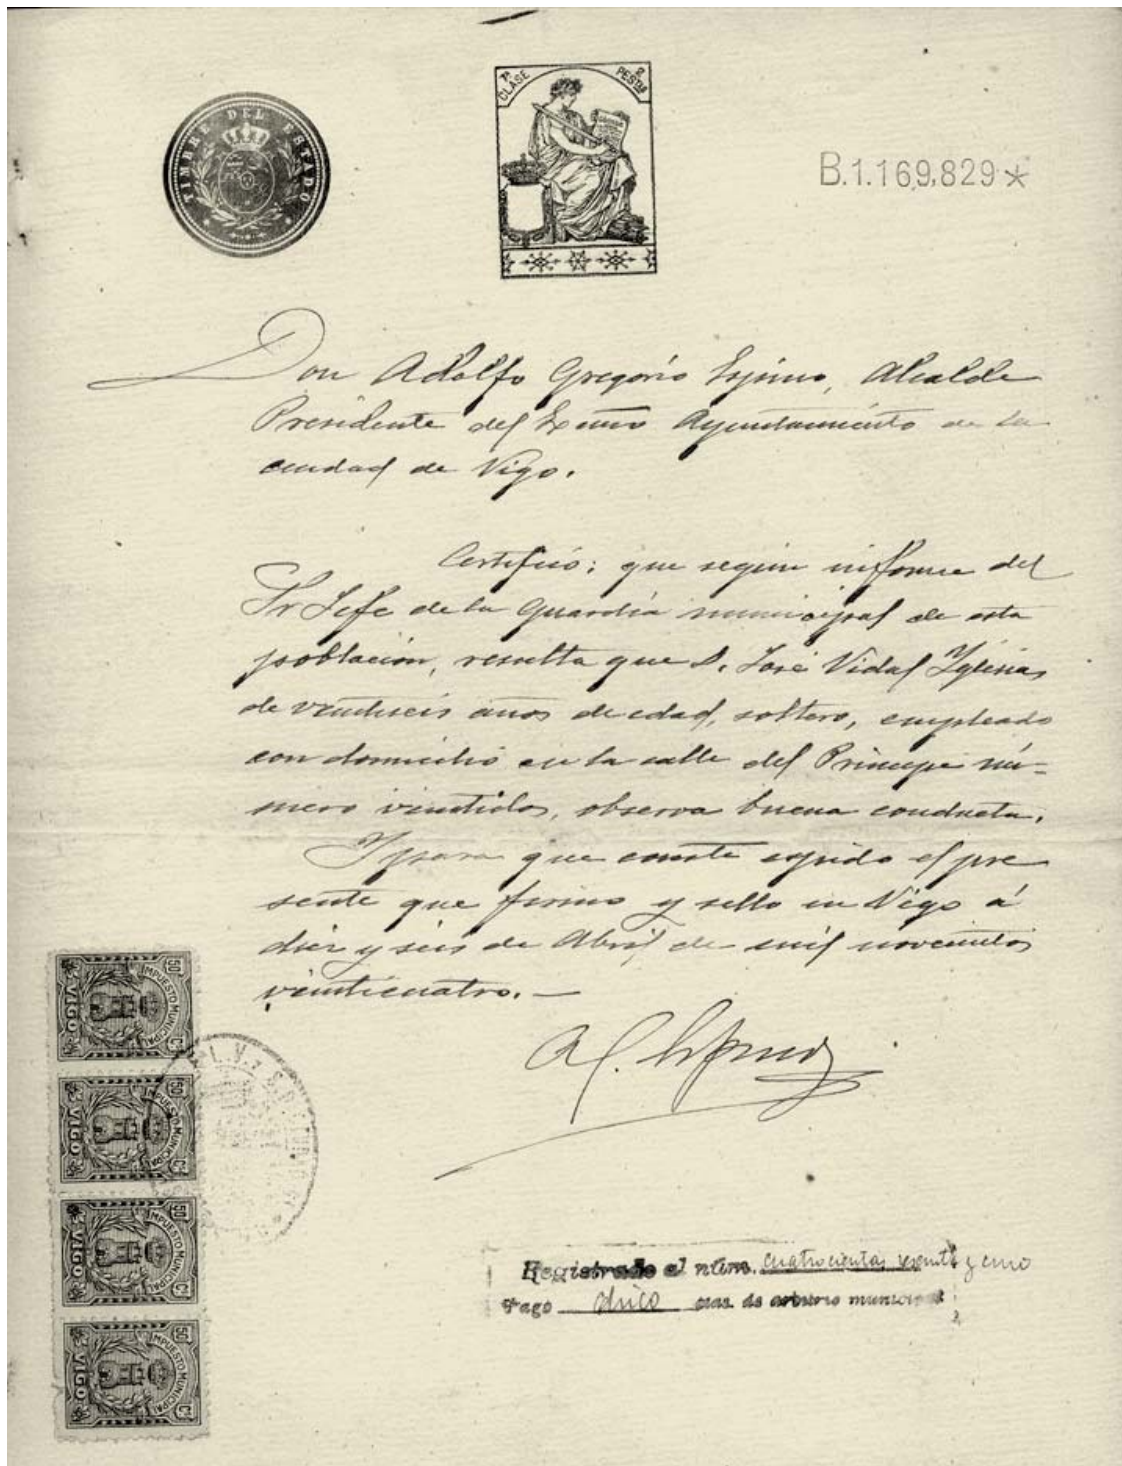 TIMBRE DEL ESTADO
7ª CLASE
2 PESTAS
B.1.169,829*
Don Adolfo Gregorio Espino, Alcalde
Presidente del Exmo Ayuntamiento de la
ciudad de Vigo.
Certifico: que según informe del
Sr Jefe de la Guardia municipal de esta
población, resulta que D. José Vidal Yglesias
de veintiseis años de edad, soltero, empleado
con domicilio en la calle del Principe nú-
mero veintidos, observa buena conducta.
Y para que conste expido el pre
sente que firmo y sello en Vigo á
diez y seis de Abril de mil novecientos
veinticuatro.—
A G. Espino
50 Cs IMPUESTO MUNICIPAL VIGO
50 Cs IMPUESTO MUNICIPAL VIGO
50 Cs IMPUESTO MUNICIPAL VIGO
50 Cs IMPUESTO MUNICIPAL VIGO
Registrado al núm. cuatrocientos y cinco
Pago cinco de arbitrio municipal